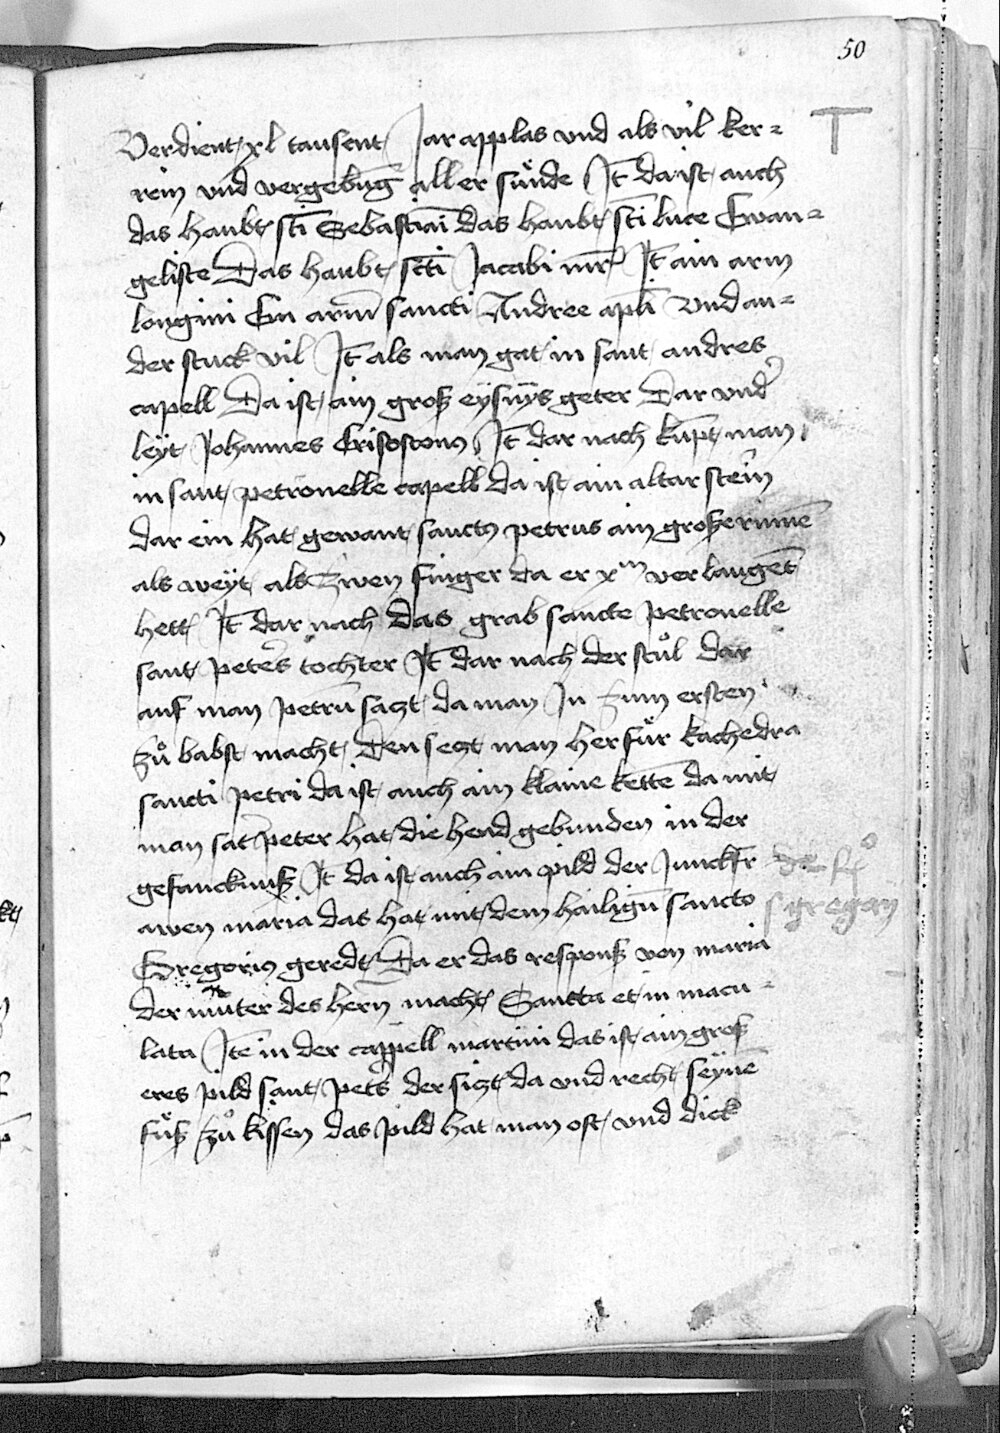 50
T
Verdient xl tausent Jar applas vnd als vil ker=
rein vnd vergebūg aller sünde It̄ da ist auch
das haubt sc̄ti Sebastiāi das haubt sc̄ti luce Ewan=
geliste Das haubt sc̄ti Jacobi mr̄ It̄ ain arm
longini Ein arm̄ sancti Andree apl̄i Vnd an=
der stuck vil It̄ als man gat in sant andres
capell Da ist ain groß eysnys geter Dar vnd̕
leyt Johannes Crisostomus It̄ dar nach kūpt man
in sant petronelle capell da ist ain altar stein
dar ein hat gewant sanctus petrus ain große rinnē
als weyt als zwen finger da er xm̄ verlaugēt
hett It̄ dar nach das grab sancte petronelle
sant peters tochter It̄ dar nach der stůl dar
auf man petrū sazt da man In zum ersten
zů babst macht Den sezt man herfür kathedra
sancti petri da ist auch ain klaine kettē da mit
man sāt peter hat die hend gebunden in der
gefancknuß It̄ da ist auch ain pild der Junckfr
awen maria das hat mit dem hailigū sancto
Gregorius geredt Da er das respons von maria
der muter des hern macht Sancta et in macu=
lata Itē in der cappell martini das ist ain groß
eres pild sant pet̕s der sizt da vnd recht seynē
füß zů kissen das pild hat man oft vnd dick
s gregorij